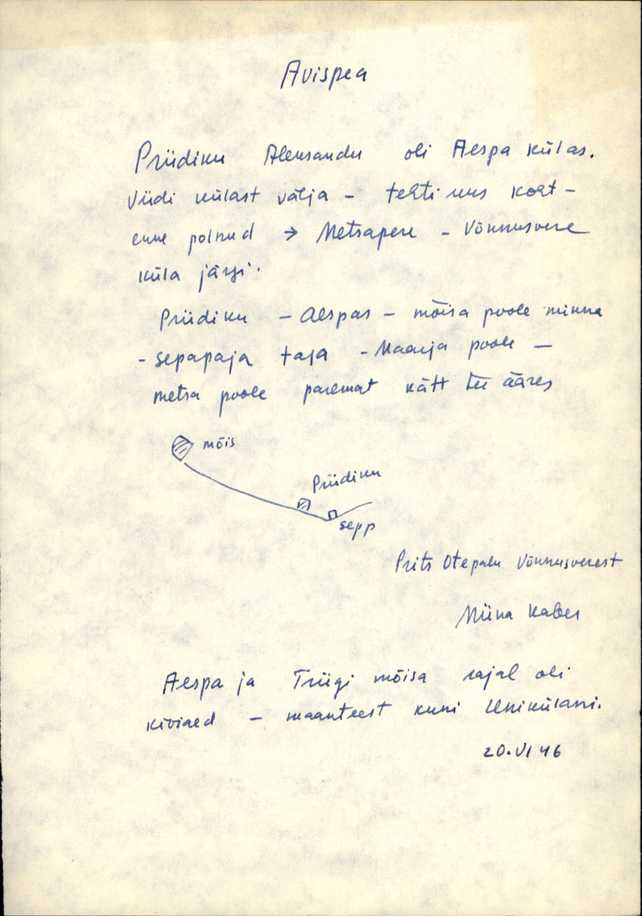 Avispea
Priidiku Aleksander oli Aespa külas.
Viidi külast välja – tehti uus koht –
enne polnud → Metsapere – Võnnusvere
küla järgi.
Priidiku – Aespas – mõisa poole minna
- sepapaja taga - Maarja poole –
metsa poole paremat kätt tee ääres
mõis
Priidiku
sepp
Prits Otepalu Võnnusverest
Miina Kaber
Aespa ja Triigi mõisa rajal oli
kiviaed – maanteest kuni Unikülani.
20.VI 46